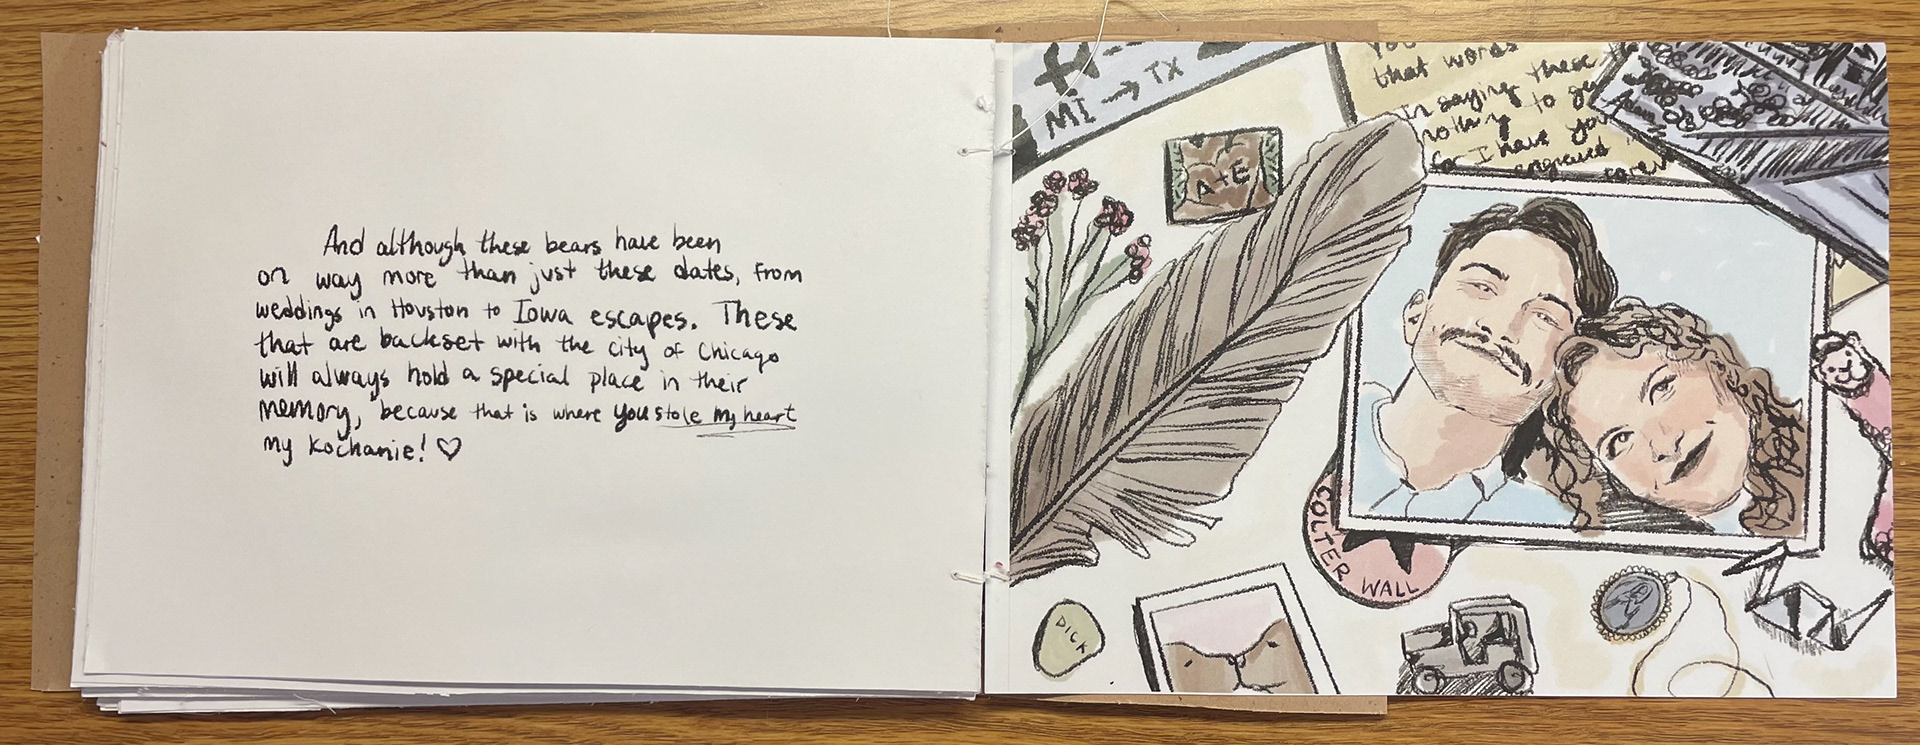 And although these bears have been
on way more than just these dates, from
weddings in Houston to Iowa escapes. These
that are backset with the city of Chicago
will always hold a special place in their
memory, because that is where you stole my heart
my kochanie! ♡
MI → TX
A+E
that words
saying these
to
for I have you
engraved
COLTER WALL
DICK